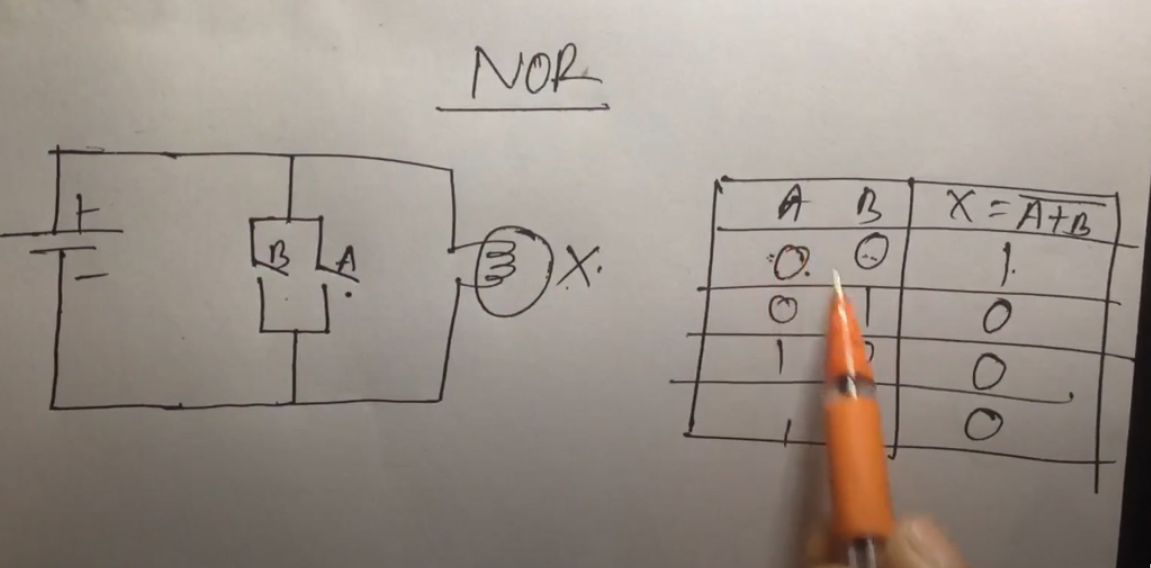 NOR
+
−
B A
X.
A B X = \overline{A+B}
0 0 1
0 1 0
1 0
1 0